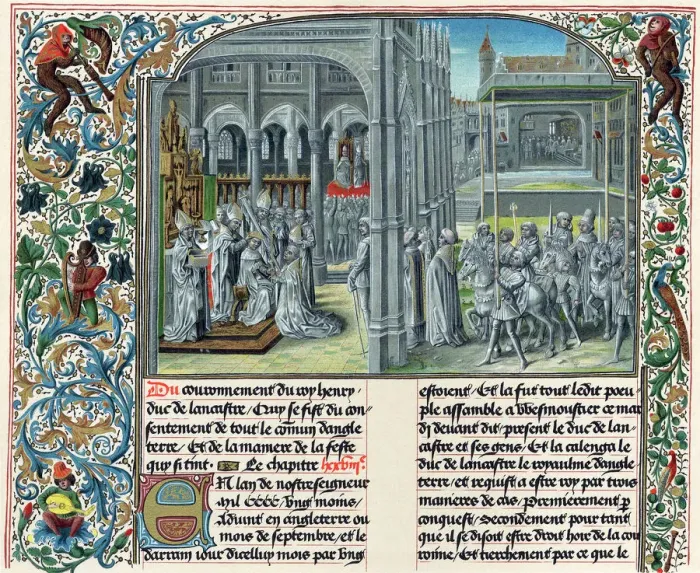 Du couronnement du roy henry
duc de lancastre / Quy se fist du con-
sentement de tout le commun dangle
terre / Et de la maniere de la feste
quy si tint. Le chapitre
En lan de nostre seigneur
mil CCCC / Ung moins /
Advint en angleterre ou
mois de septembre / et le
darrain iour dicelluy mois par ung
estoient / Et la fut tout ledit peu-
ple assamble a Wesmoustier ce mar
di devant dit / present le duc de lan-
castre et ses gens / Et la calenga le
duc de lancastre le royaulme dangle
terre / et requist a estre roy par trois
manieres de cas / Premierement p
conquest / Secondement pour tant
que il se disoit estre droit hoir de la cou
ronne / Et tierchement par ce que le